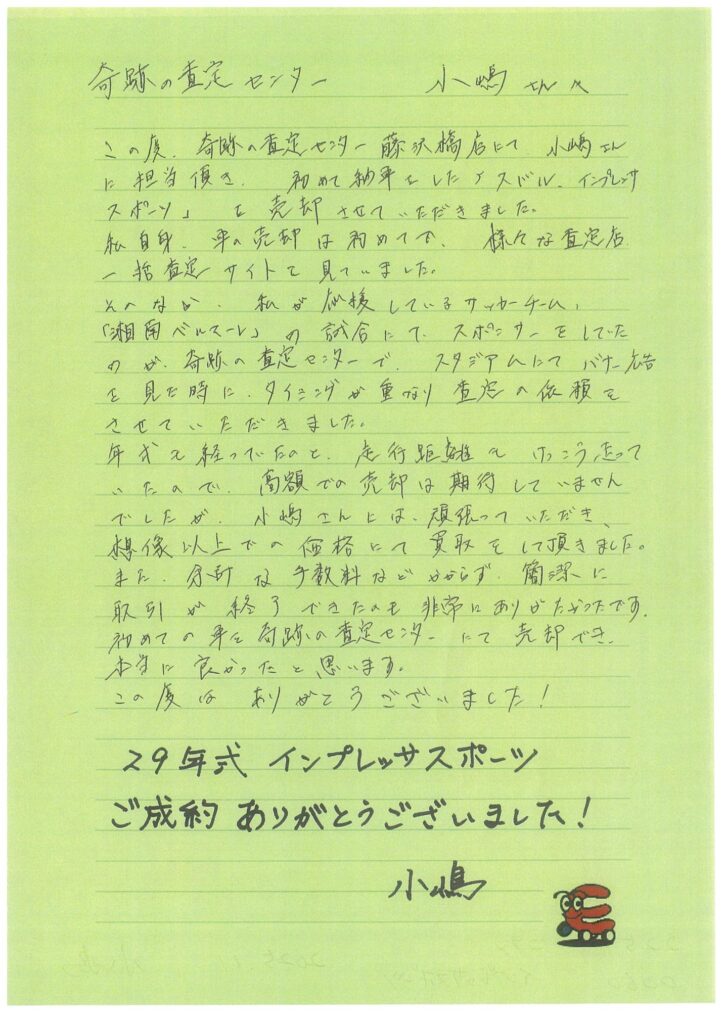 奇跡の査定センター 小嶋さんへ
この度、奇跡の査定センター藤沢橋店にて 小嶋さん
に担当頂き、初めて納車をした「スバル、インプレッサ
スポーツ」を売却させていただきました。
私自身、車の売却は初めてで、様々な査定店
一括査定サイトで見ていました。
そんなか、私が応援しているサッカーチーム、
「湘南ベルマーレ」の試合にて、スポンサーをしていた
のが、奇跡の査定センターで、スタジアムにてバナー広告
を見た時に、タイミングが重なり査定の依頼を
させていただきました。
年式も経っていたのと、走行距離もけっこう走って
いたので、高額での売却は期待していません
でしたが、小嶋さんには、頑張っていただき、
想像以上での価格にて買取をして頂きました。
また、余計な手数料などかからず、簡潔に
取引が終了できたのも非常にありがたかったです。
初めての車を奇跡の査定センターにて売却でき、
本当に良かったと思います。
この度はありがとうございました!
29年式 インプレッサスポーツ
ご成約ありがとうございました!
小嶋